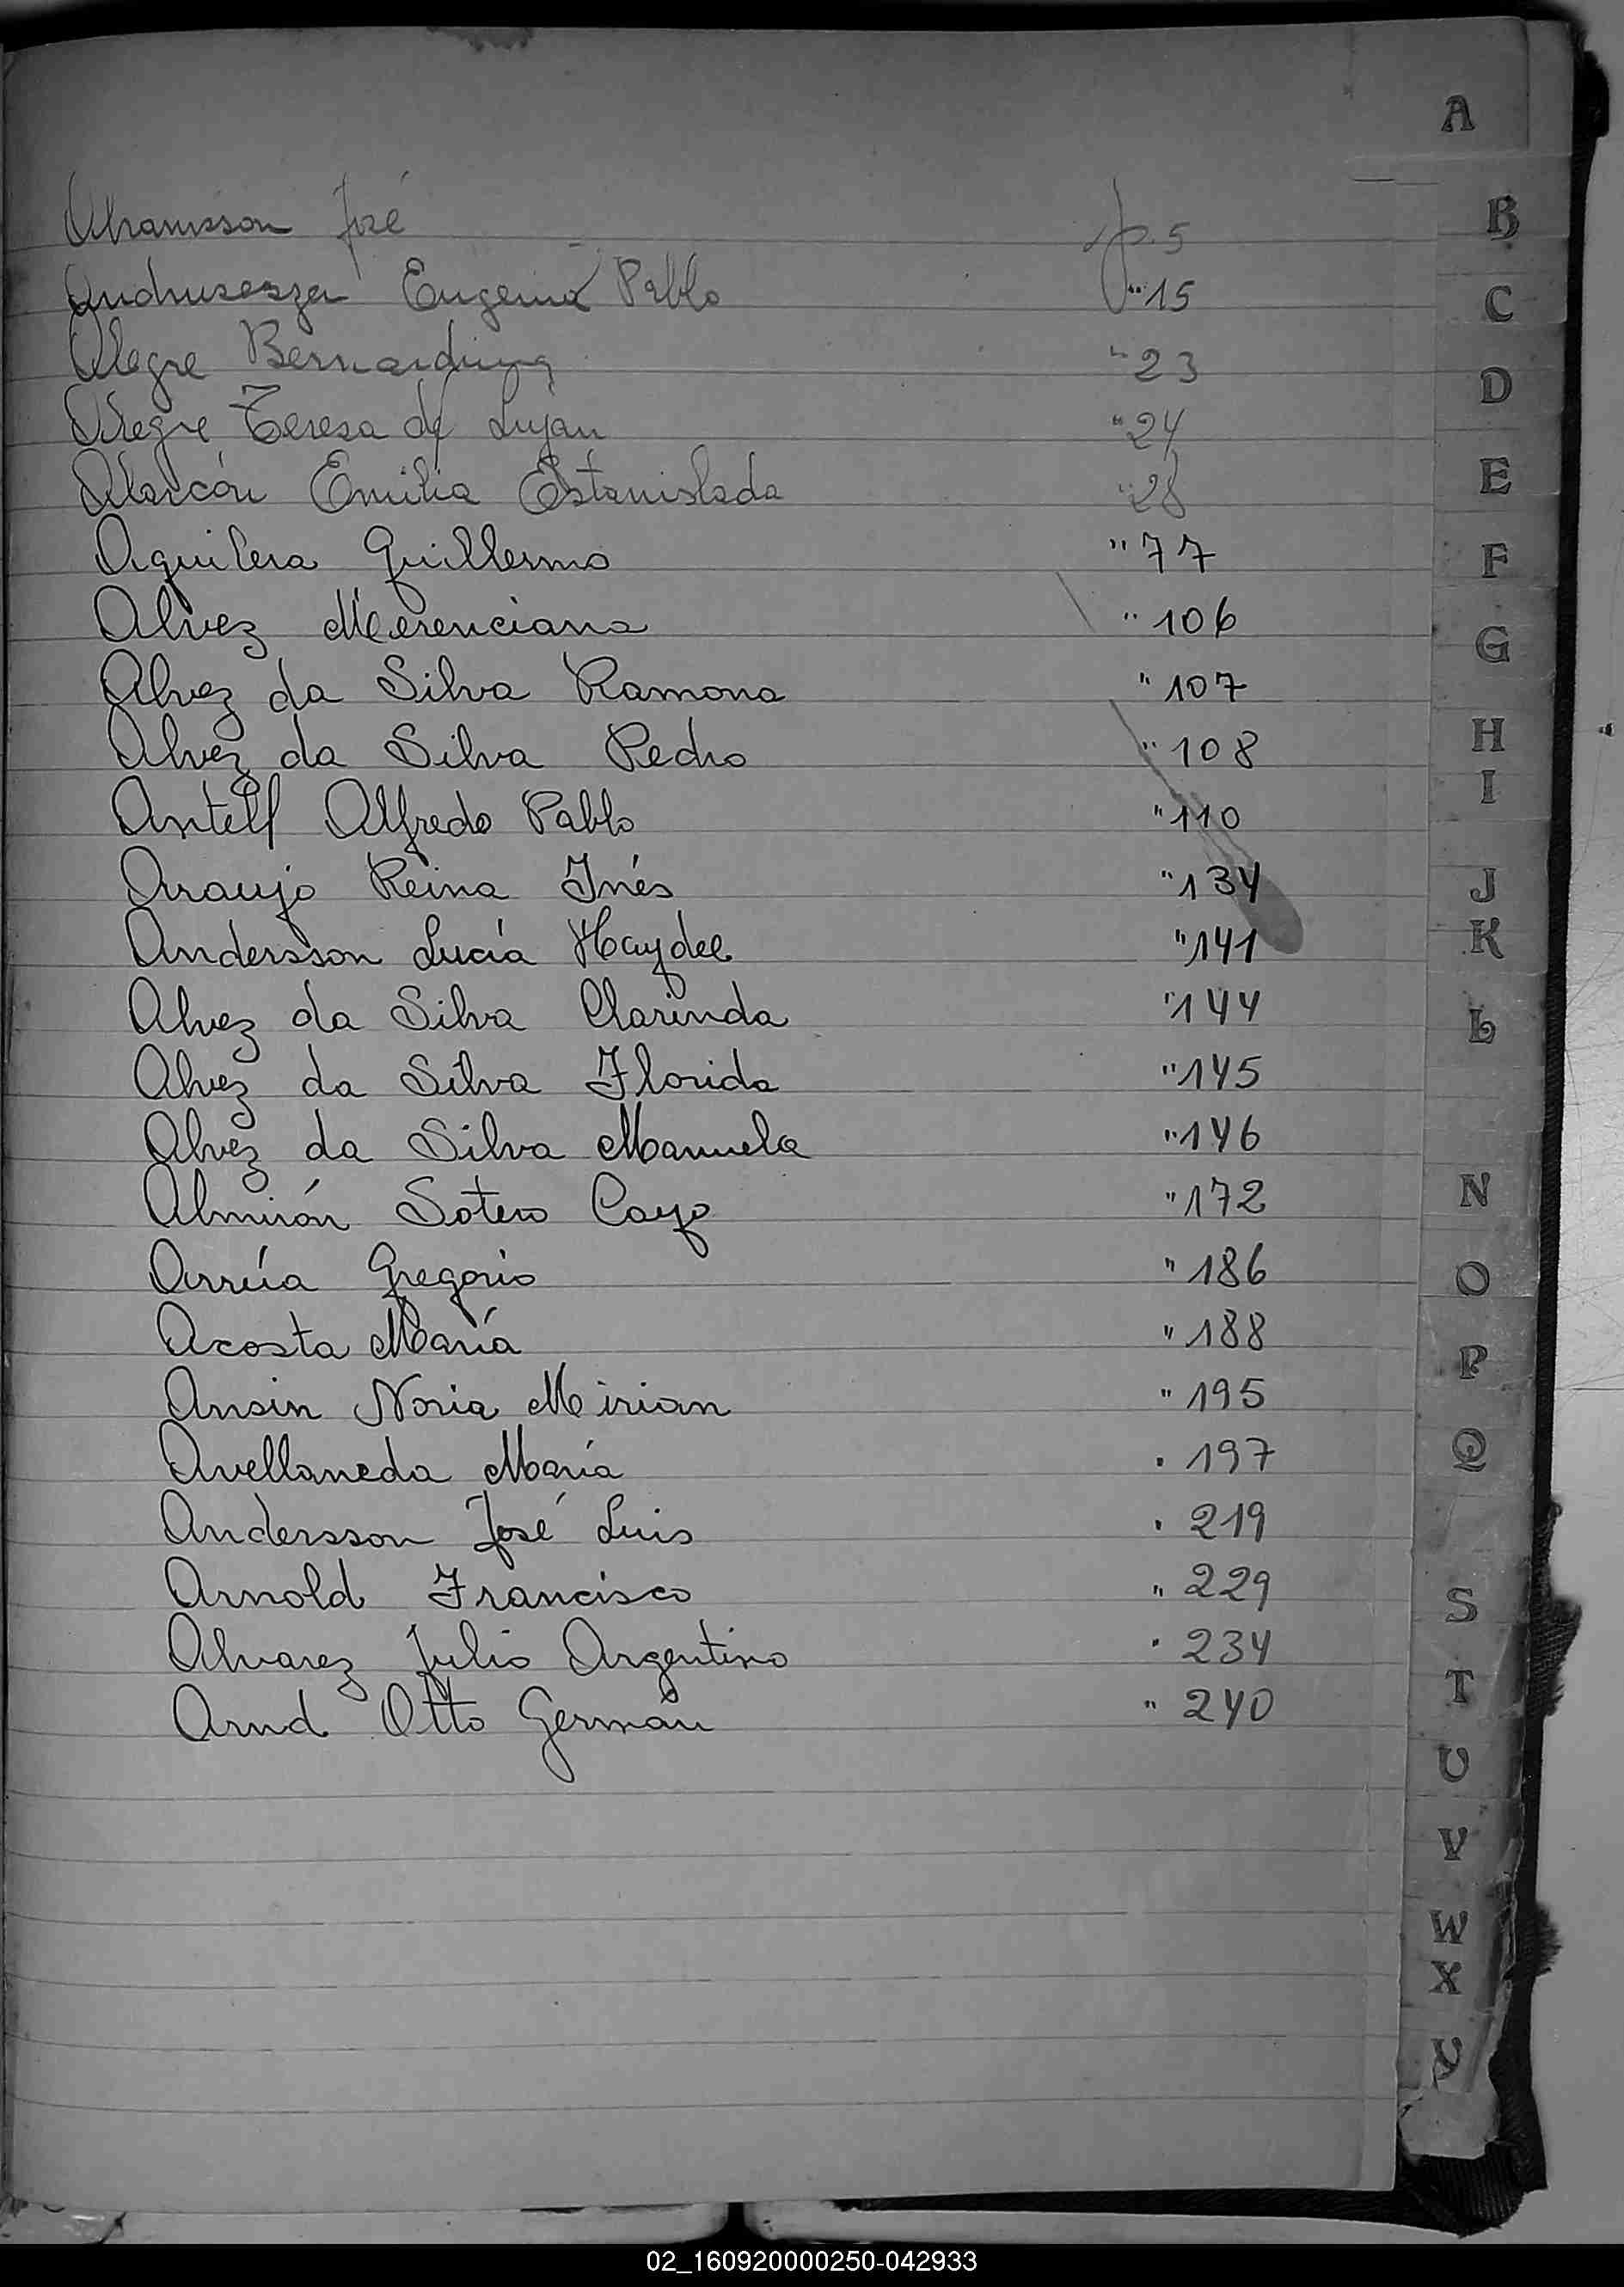 A
Abramsson José p. 5
Eugenia Pablo " 15
Alegre Bernardina " 23
Alegre Teresa de Luján " 24
Alarcón Emilia Estanislada " 28
Aguilera Guillermo " 77
Alvez Merenciana " 106
Alvez da Silva Ramona " 107
Alvez da Silva Pedro " 108
Antell Alfredo Pablo " 110
Araujo Reina Inés " 134
Andersson Lucía Haydee " 141
Alvez da Silva Clarinda " 144
Alvez da Silva Florida " 145
Alvez da Silva Manuela " 146
Almirón Sotero Cayo " 172
Arrúa Gregorio " 186
Acosta María " 188
Ansin Noria Mirian " 195
Avellaneda María " 197
Andersson José Luis " 219
Arnold Francisco " 229
Alvarez Julio Argentino " 234
Arnd Otto Germán " 240
B
C
D
E
F
G
H
I
J
K
L
N
O
P
Q
S
T
U
V
W
X
Y
02_160920000250-042933